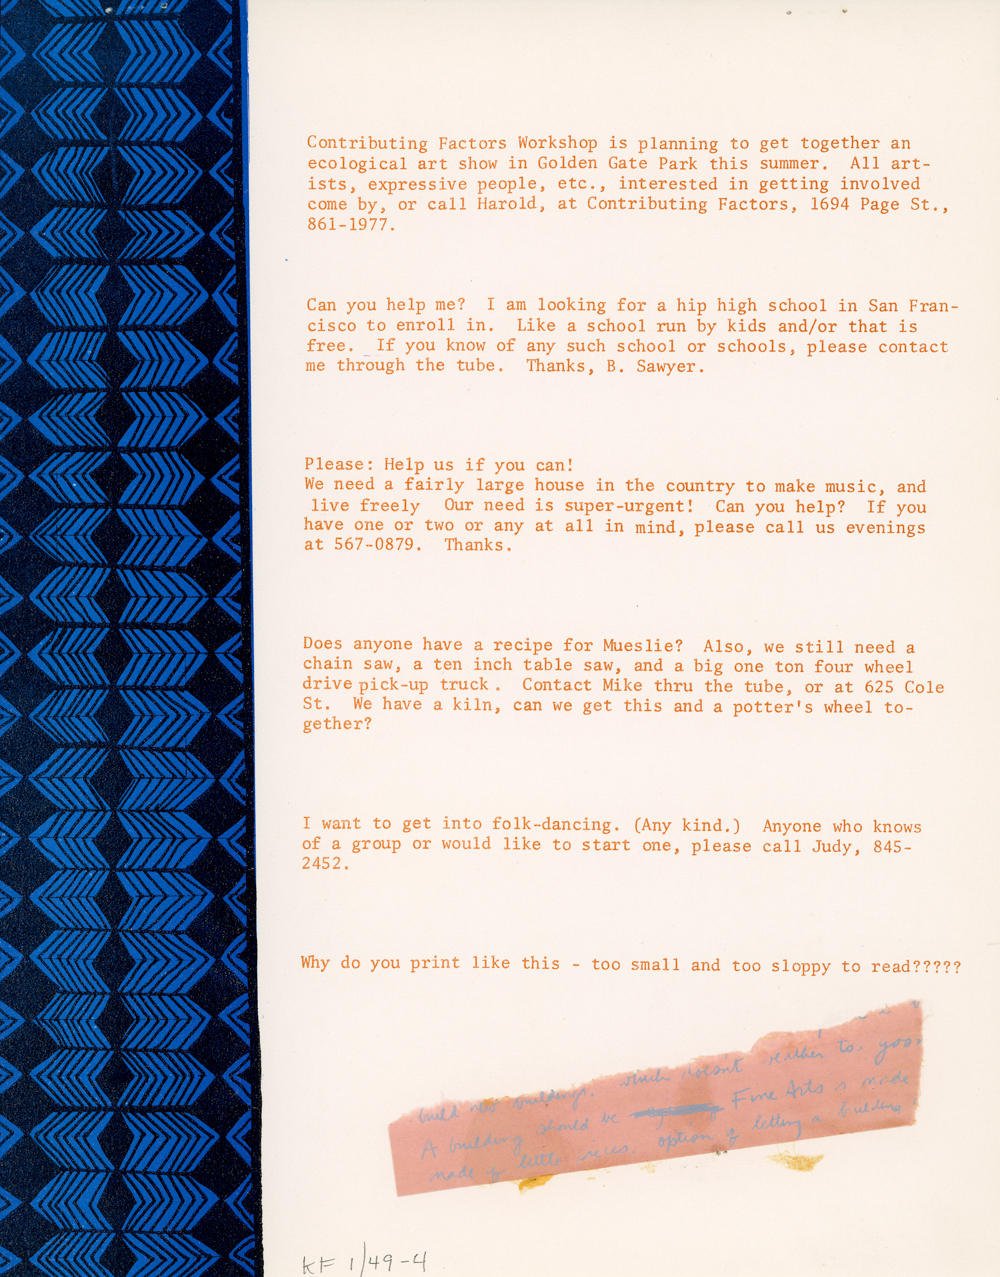 Contributing Factors Workshop is planning to get together an
ecological art show in Golden Gate Park this summer.  All art-
ists, expressive people, etc., interested in getting involved
come by, or call Harold, at Contributing Factors, 1694 Page St.,
861-1977.
Can you help me?  I am looking for a hip high school in San Fran-
cisco to enroll in.  Like a school run by kids and/or that is
free.  If you know of any such school or schools, please contact
me through the tube.  Thanks, B. Sawyer.
Please: Help us if you can!
We need a fairly large house in the country to make music, and
live freely  Our need is super-urgent!  Can you help?  If you
have one or two or any at all in mind, please call us evenings
at 567-0879.  Thanks.
Does anyone have a recipe for Mueslie?  Also, we still need a
chain saw, a ten inch table saw, and a big one ton four wheel
drive pick-up truck.  Contact Mike thru the tube, or at 625 Cole
St.  We have a kiln, can we get this and a potter's wheel to-
gether?
I want to get into folk-dancing. (Any kind.)  Anyone who knows
of a group or would like to start one, please call Judy, 845-
2452.
Why do you print like this - too small and too sloppy to read?????
build new buildings. which doesn't to
A building should be Fine Arts is made
made of little option of letting a building
KF 1/49-4